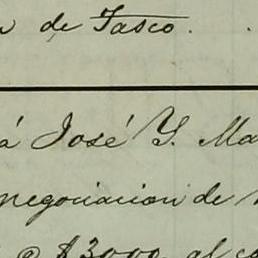 de Tasco.
á José Y. Ma
negociacion de
@ $3000 al co